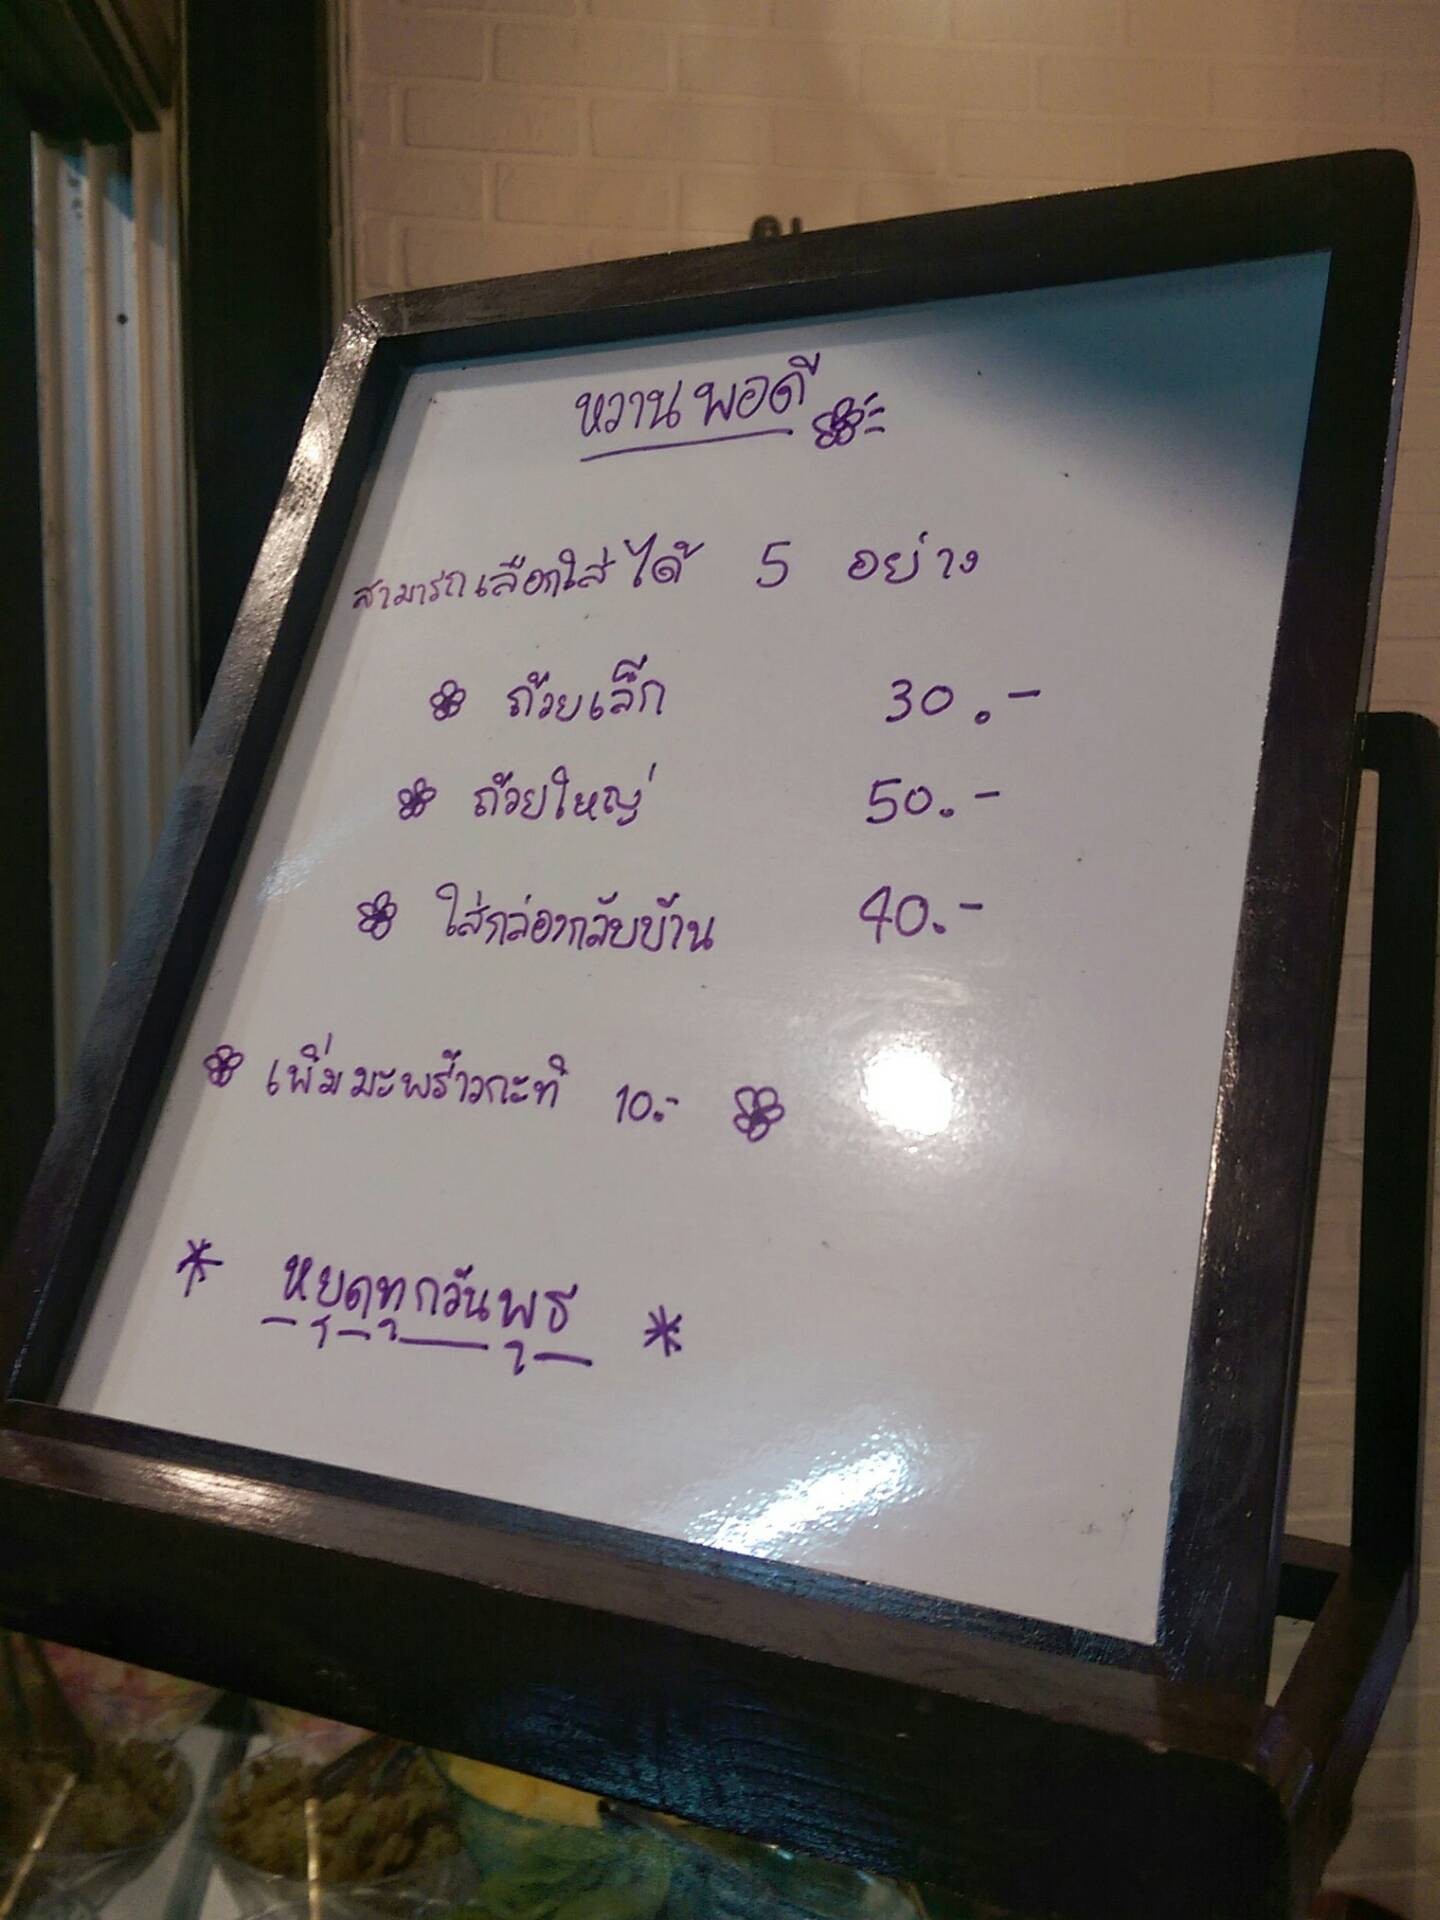 หวานพอดี
สามารถเลือกใส่ได้ 5 อย่าง
ถ้วยเล็ก 30.-
ถ้วยใหญ่ 50.-
ใส่กล่องกลับบ้าน 40.-
เพิ่มมะพร้าวกะทิ 10.-
* หยุดทุกวันพุธ *